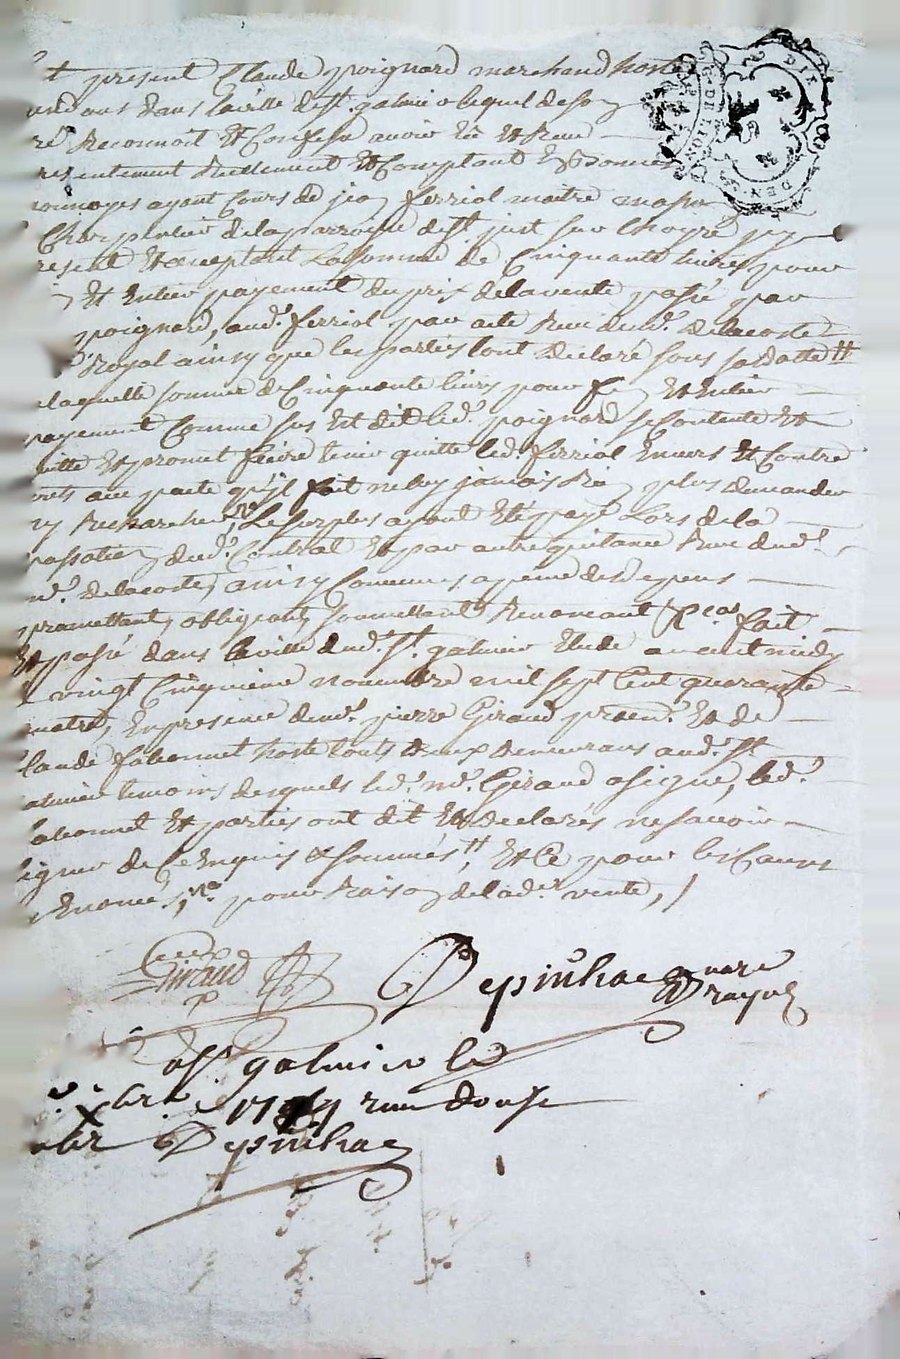 present Claude poignard marchand hoste
dans laville de st galmie lequel de son
Reconnoit Et Confesse avoir Eu Et Receu
presentement Reellement Et Comptant En bonnes
monnoyes ayant Cours de jean ferriol maitre masson
Charpentier de la parroisse de st just sur
present Et aceptant La somme de Cinquante livres pour
Et Entier payement du prix de la vente passé par
poignard, aud. ferriol par acte Receu dud. me. delacoste
Royal ainsy que les parties l'ont declaré sous sa datte
laquelle somme de Cinquante livres pour fin Et Entier
payement Comme sus Est dit led. poignard se Contente Et
quitte Et promet faire tenir quitte led. ferriol Envers Et Contre
avec pacte qu'il fait ne luy jamais Rien plus demander
ny Rechercher, Le surplus ayant Eté payé Lors de la
passation dud. Contrat Et par autre quitance Receu dud.
me. delacoste, ainsy Convenu a peine des depens
promettant, obligeant, soumettant Renonceant &cas. fait
Et passé dans la ville dud. st. galmier Etude avant midy
vingt Cinquieme novembre mil sept Cent quarante
quatre, En presence de me. pierre Giraud Et de
Claude hoste touts deux demeurans aud. st.
galmier temoins desquels led. me. Giraud a signé, led.
Et parties ont dit Et declarés ne savoir
signer de Ce Enquis & sommés, Et Ce pour les Causes
Enoncé, pour Raison de lad. vente,
Giraud
Depinhac nore
Royal
a st galmier le
xbre 1744 receu douze
Depinhac